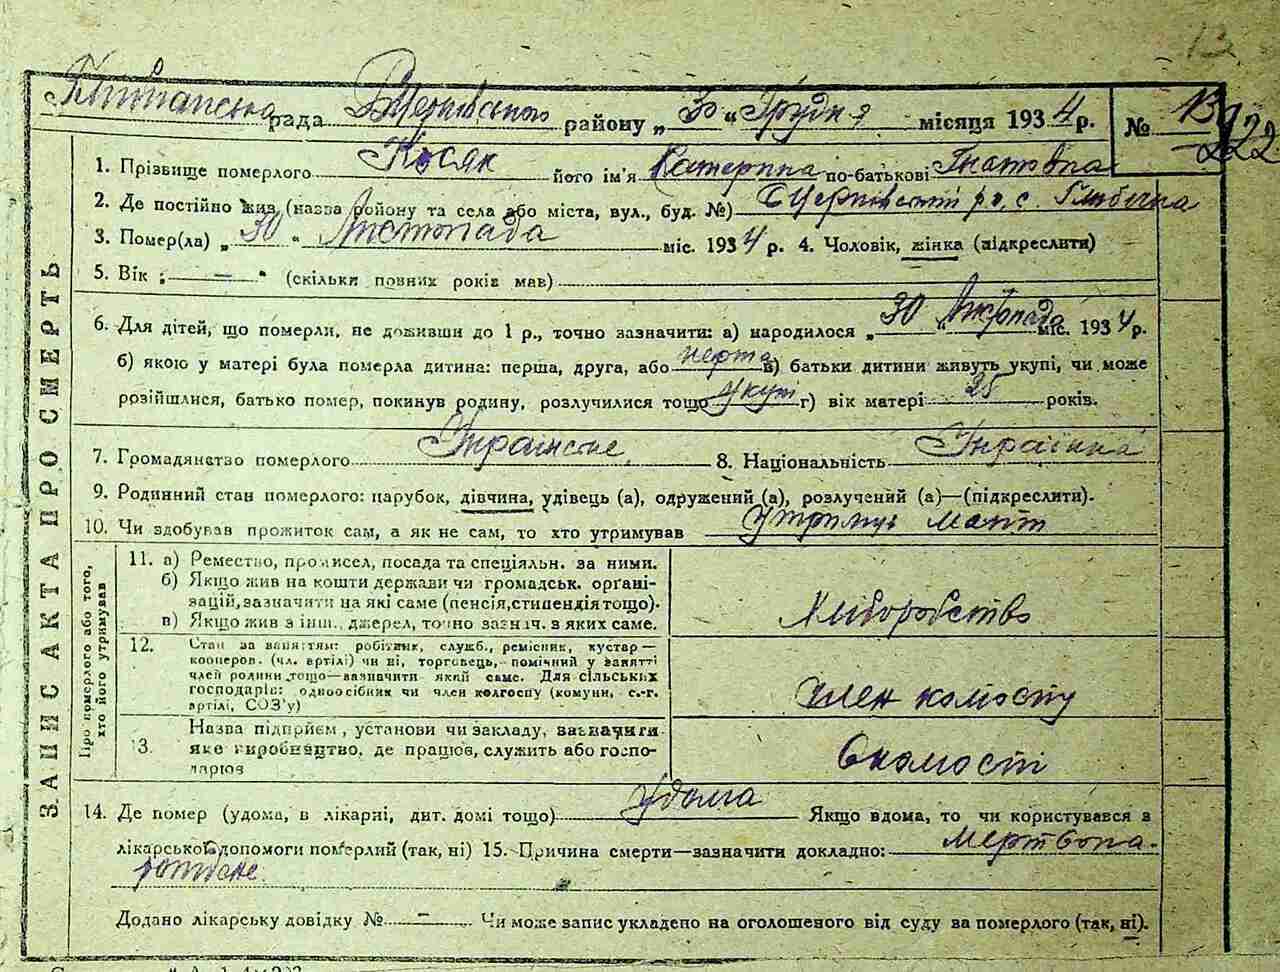 13
рада района району „ 30 “ Грудня місяця 1934 р. № 13
222
1. Прізвище померлого Косяк його ім'я Катерина по-батькові Гнатовна
2. Де постійно жив (назва району та села або міста, вул., буд. №) р., с. Глибочка
3. Помер(ла) „ 30 “ Листопада міс. 1934 р. 4. Чоловік, жінка (підкреслити)
5. Вік : — " (скільки повних років мав)
6. Для дітей, що померли, не доживши до 1 р., точно зазначити: а) народилося „ 30 „ Листопада міс. 1934 р.
б) якою у матері була померла дитина: перша, друга, або перта в) батьки дитини живуть укупі, чи може
розійшлися, батько помер, покинув родину, розлучилися тощо укупі г) вік матері 25 років.
7. Громадянство померлого Українське 8. Національність Українка
9. Родинний стан померлого: парубок, дівчина, удівець (а), одружений (а), розлучений (а)—(підкреслити).
10. Чи здобував прожиток сам, а як не сам, то хто утримував
ЗАПИС АКТА ПРО СМЕРТЬ
Про померлого або того, хто його утримував
11. а) Ремество, промисел, посада та спеціяльн. за ними.
б) Якщо жив на кошти держави чи громадськ. орґані-
зацій, зазначити на які саме (пенсія, стипендія тощо).
в) Якщо жив з інш. джерел, точно зазнач. з яких саме.
Хліборобство
12. Стан за заняттям: робітник, служб., ремісник, кустар—
кооперов. (чл. артілі) чи ні, торговець,- помічний у занятті
член родини тощо—зазначити який саме. Для сільських
господарів: одноосібник чи член колгоспу (комуни, с.-г.
артілі, СОЗ'у)
член
13. Назва підприєм., установи чи закладу, зазначити
яке виробництво, де працював, служить або госпо-
дарював
14. Де помер (удома, в лікарні, дит. домі тощо) Удома Якщо вдома, то чи користувався з
лікарської допомоги померлий (так, ні) 15. Причина смерти—зазначити докладно: Мертвона-
Додано лікарську довідку № — Чи може запис укладено на оголошеного від суду за померлого (так, ні).